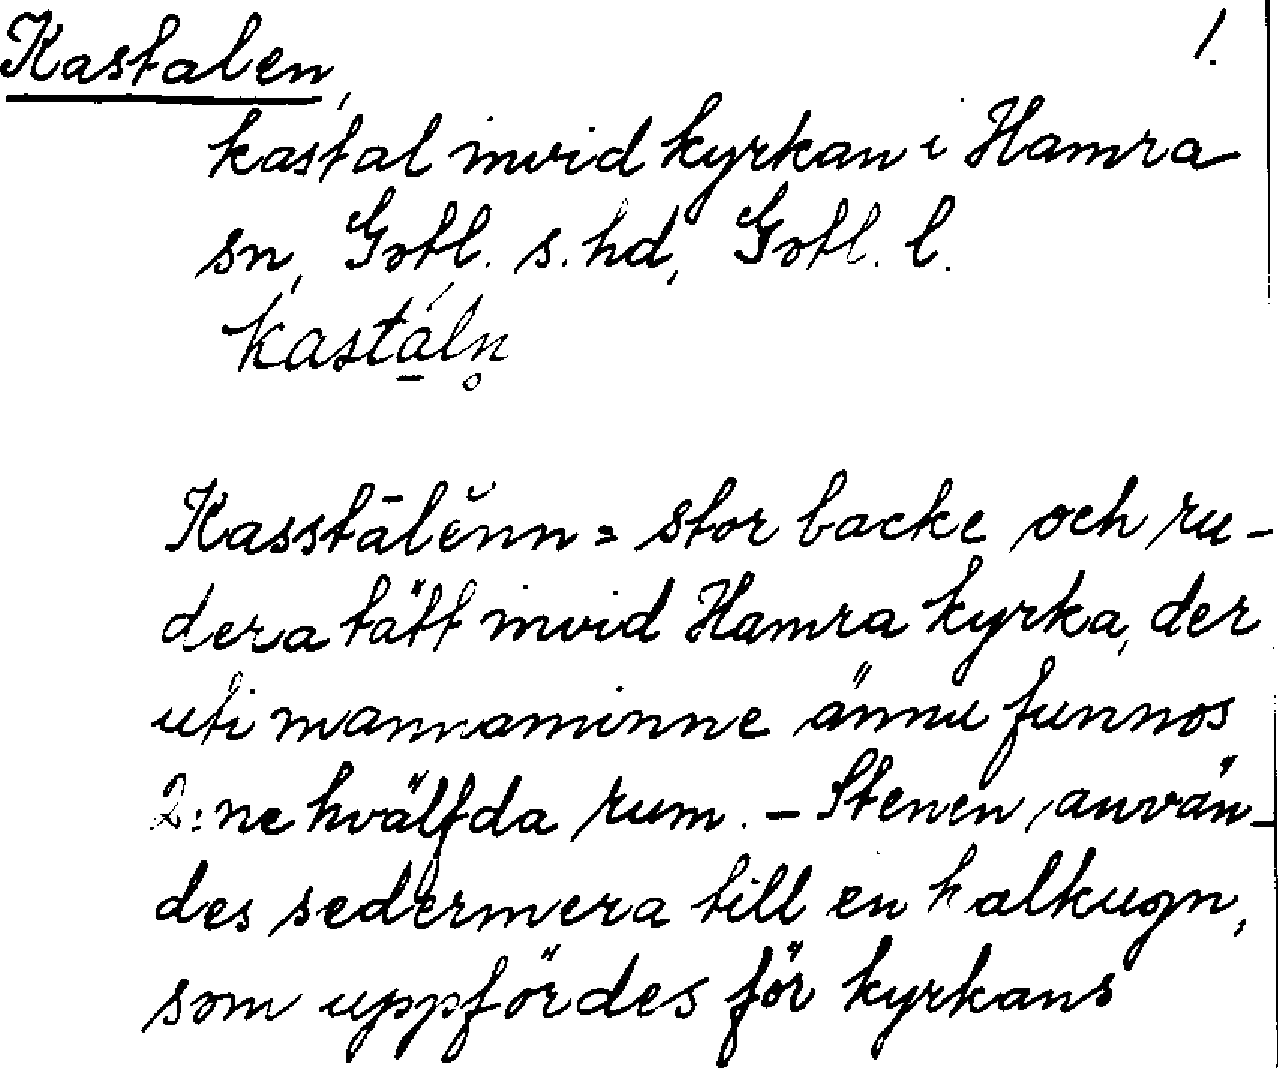 Kastalen, 1.
kastal invid kyrkan i Hamra
sn, Gotl. s. hd, Gotl. l.
kastá̱ln̥
Kasstālĕnn = stor backe och ru-
dera tätt invid Hamra kyrka, der
uti mannaminne ännu funnos
2:ne hvälfda rum. - Stenen använ-
des sedermera till en kalkugn,
som uppfördes för kyrkans